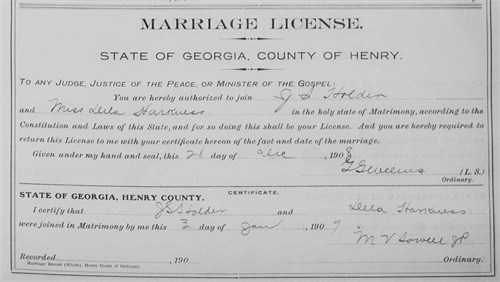 MARRIAGE LICENSE.
STATE OF GEORGIA, COUNTY OF HENRY.
TO ANY JUDGE, JUSTICE OF THE PEACE, OR MINISTER OF THE GOSPEL:
You are hereby authorized to join J S Holder
and Miss Lula Harkness in the holy state of Matrimony, according to the
Constitution and Laws of this State, and for so doing this shall be your License. And you are hereby required to
return this License to me with your certificate hereon of the fact and date of the marriage.
Given under my hand and seal, this 28 day of Dec , 1908
(L. S.)
Ordinary.
CERTIFICATE.
STATE OF GEORGIA, HENRY COUNTY.
I certify that J S Holder and Harkness
were joined in Matrimony by me this 3 day of Jan , 1909.
M V Sowell JP
Recorded , 190 Ordinary.
Marriage Record (White), Henry Court of Ordinary.